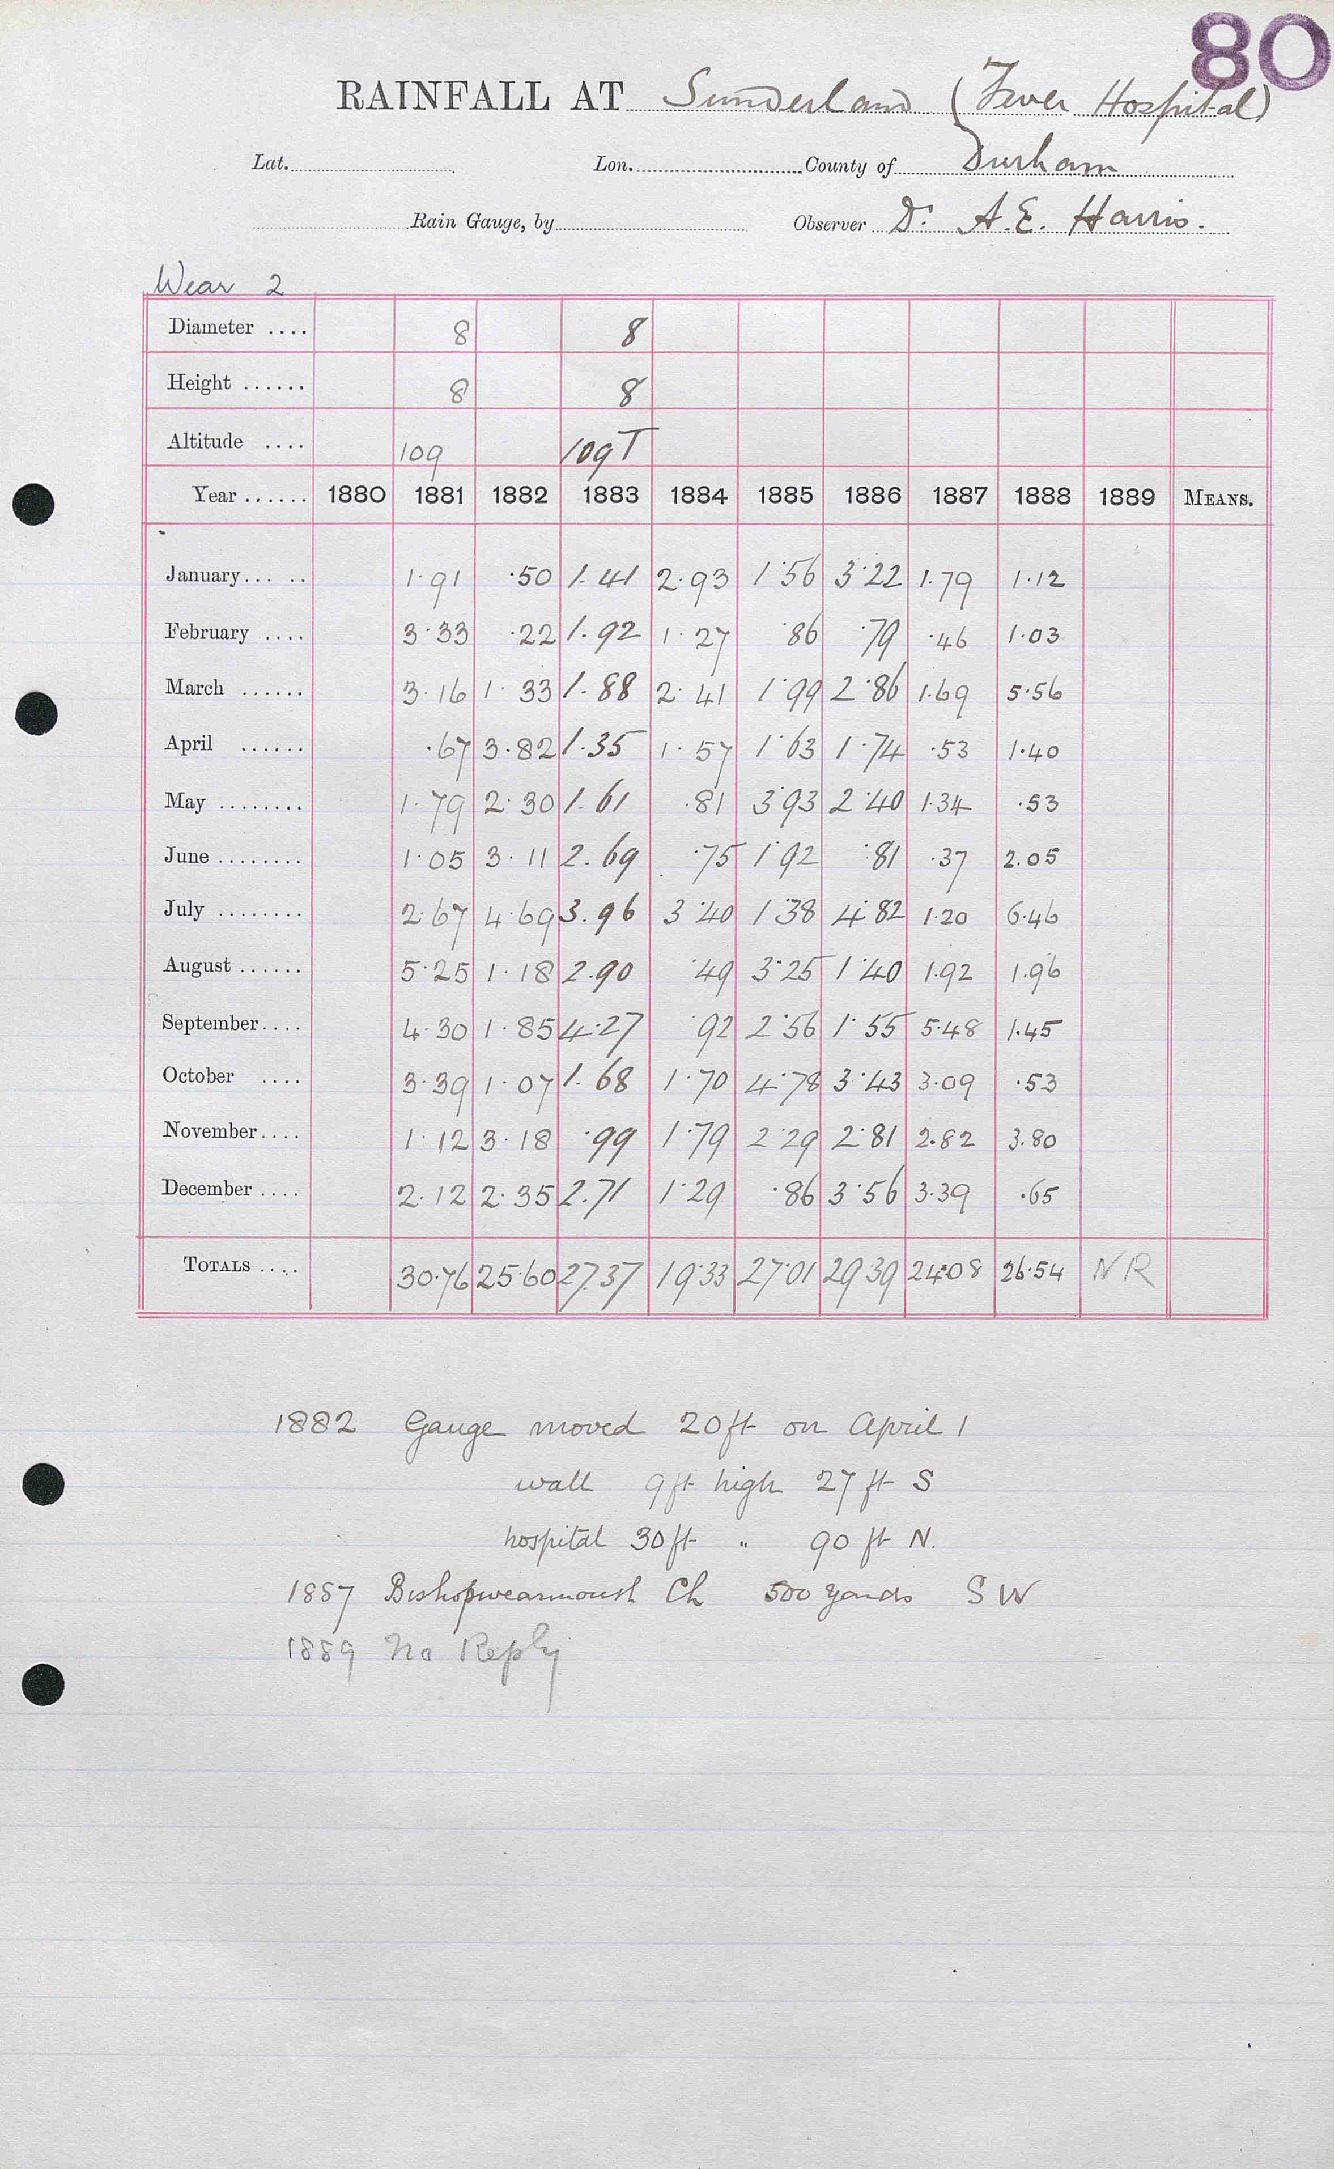 80
RAINFALL AT Sunderland (Fever Hospital)
Lat. Lon. County of Durham
Rain Gauge, by Observer Dr. A.E. Harris.
Wear 2
Diameter .... 8 8
Height ...... 8 8
Altitude .... 109 109 T
Year ...... 1880 1881 1882 1883 1884 1885 1886 1887 1888 1889 MEANS.
January... .. 1.91 .50 1.41 2.93 1.56 3.22 1.79 1.12
February .... 3.33 .22 1.92 1.27 .86 .79 .46 1.03
March ...... 3.16 1.33 1.88 2.41 1.99 2.86 1.69 5.56
April ...... .67 3.82 1.35 1.57 1.63 1.74 .53 1.40
May ........ 1.79 2.30 1.61 .81 3.93 2.40 1.34 .53
June ........ 1.05 3.11 2.69 .75 1.92 .81 .37 2.05
July ........ 2.67 4.69 3.96 3.40 1.38 4.82 1.20 6.46
August ...... 5.25 1.18 2.90 .49 3.25 1.40 1.92 1.96
September.... 4.30 1.85 4.27 .92 2.56 1.55 5.48 1.45
October .... 3.39 1.07 1.68 1.70 4.78 3.43 3.09 .53
November.... 1.12 3.18 .99 1.79 2.29 2.81 2.82 3.80
December .... 2.12 2.35 2.71 1.29 .86 3.56 3.39 .65
TOTALS .... 30.76 25.60 27.37 19.33 27.01 29.39 24.08 26.54 NR
1882 Gauge moved 20ft on April 1
wall 9ft high 27 ft S
hospital 30ft " 90 ft N.
1887 Bishopwearmouth Ch 500 yards S W
1889 No Reply